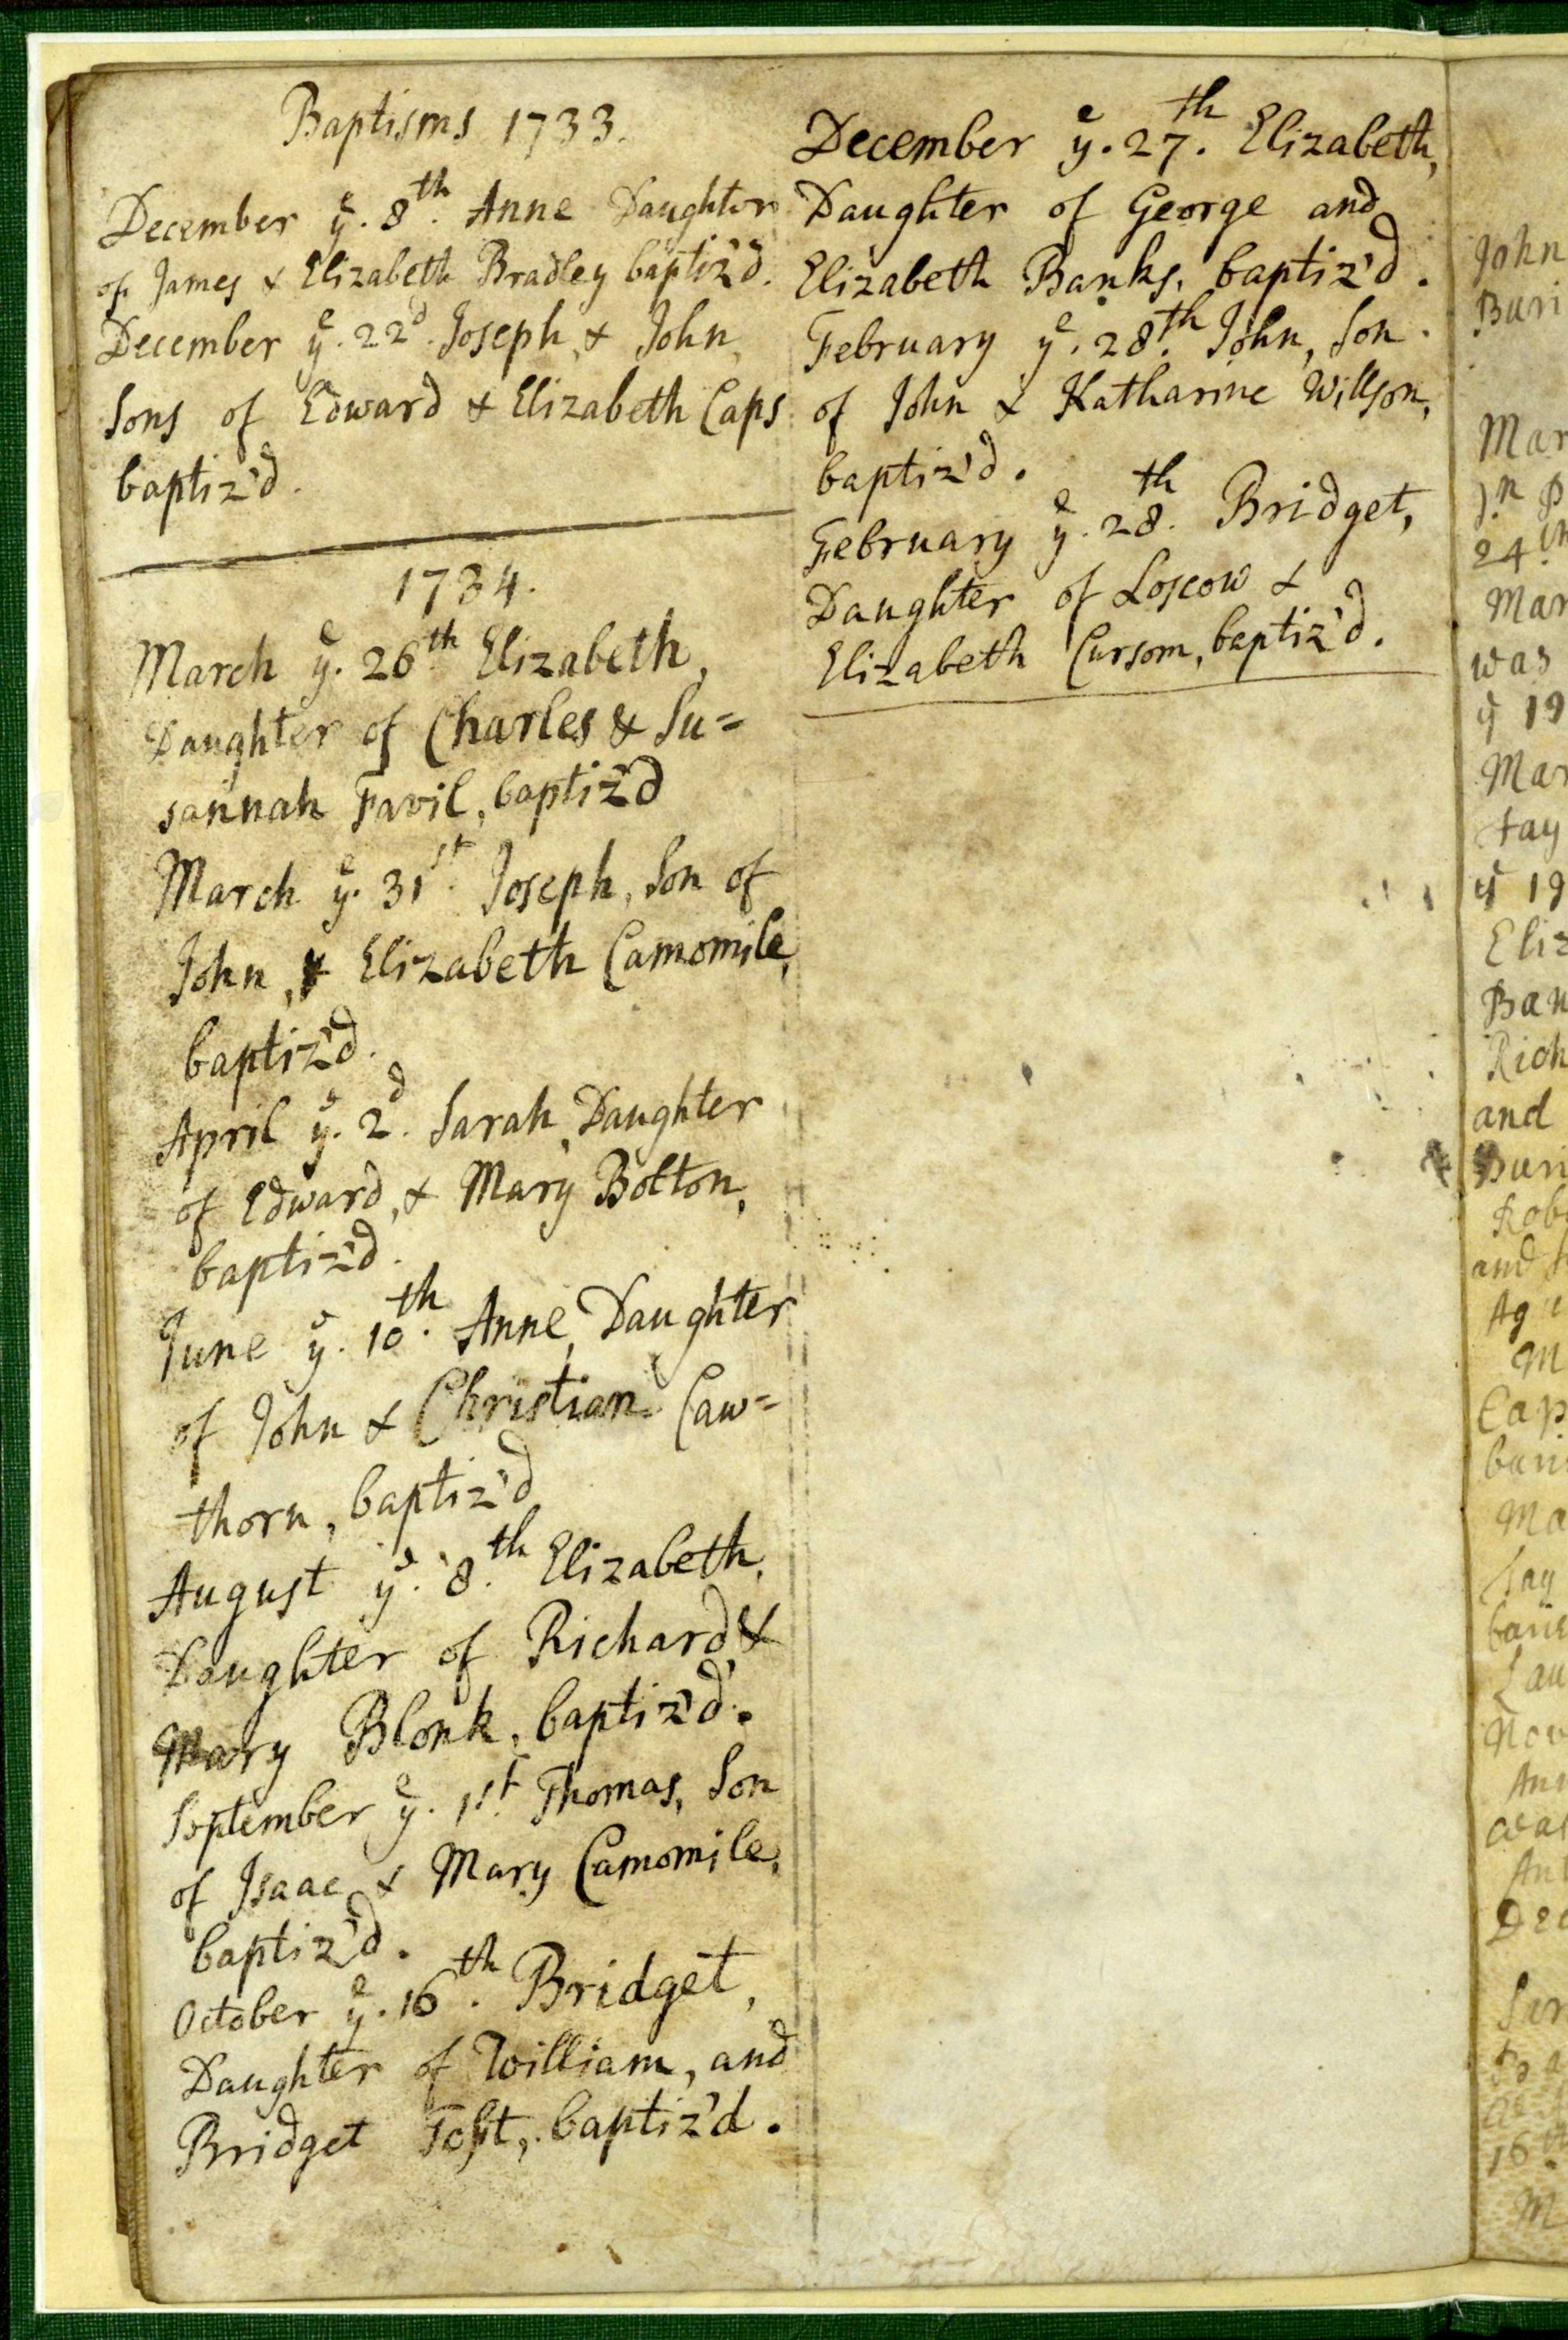 Baptisms 1733.
December yͤ. 8th. Anne Daughter
of James & Elizabeth Bradley baptiz'd.
December yͤ. 22d. Joseph, & John,
Sons of Edward & Elizabeth Caps
baptiz'd.
1734.
March yͤ. 26th Elizabeth,
Daughter of Charles & Su=
sannah Favil, baptiz'd
March yͤ. 31st. Joseph, Son of
John, & Elizabeth Camomile,
baptiz'd.
April yͤ. 2d. Sarah, Daughter
of Edward, & Mary Bolton,
baptiz'd.
June yͤ. 10th. Anne, Daughter
of John & Christian Caw=
thorn, baptiz'd
August yͤ. 8th. Elizabeth,
Daughter of Richard, &
Mary Blonk, baptiz'd.
September yͤ. 1st. Thomas, Son
of Isaac & Mary Camomile,
baptiz'd.
October yͤ. 16th. Bridget,
Daughter of William, and
Bridget Toft, baptiz'd.
December yͤ. 27th. Elizabeth,
Daughter of George and
Elizabeth Banks, baptiz'd.
February yͤ. 28th. John, Son
of John & Katharine Willson,
baptiz'd.
February yͤ. 28th. Bridget,
Daughter of Loscow &
Elizabeth Cursom, baptiz'd.
John
Buri
Mar
24th
Mar
was
yͤ 19
Mar
yͤ 19
Eliz
Ban
Rich
and
Buri
Robe
and
M
Cap
buri
Ma
Nov
Dec
16th
M